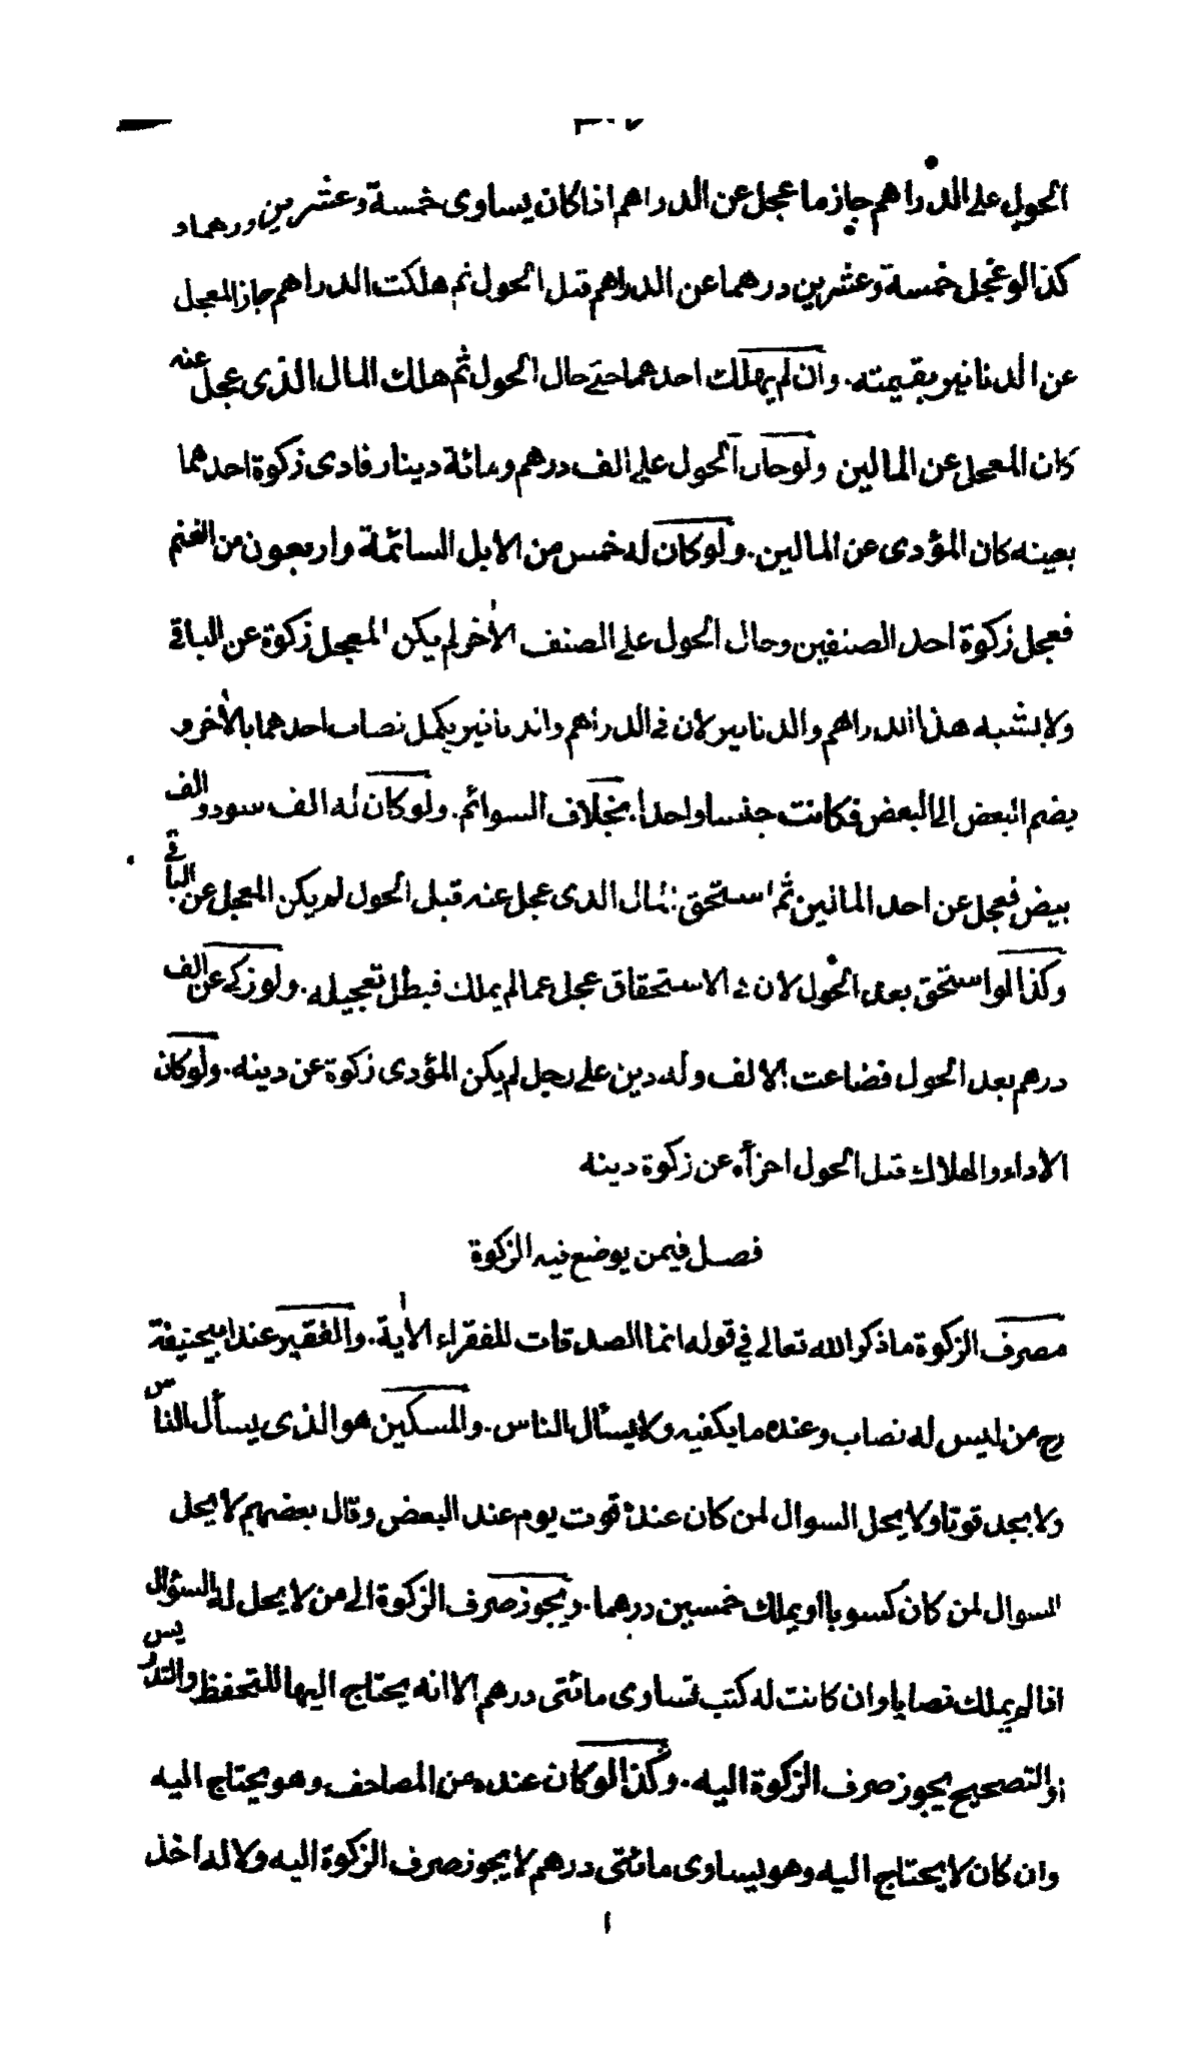 الحول على الدراهم جاز ما عجل عن الدراهم اذا كان يساوى خمسة وعشرين درهما و
كذا لو عجل خمسة وعشرين درهما عن الدراهم قبل الحول ثم هلكت الدراهم جاز المعجل
عن الدنانير بقيمته. وان لم يهلك احدهما حتى حال الحول ثم هلك المال الذى عجل عنه
كان المعجل عن المالين ولو حال الحول على الف درهم ومائة دينار فادى زكوة احدهما
بعينه كان المؤدى عن المالين. ولو كان له خمس من الابل السائمة واربعون من الغنم
فعجل زكوة احد الصنفين وحال الحول على الصنف الاخر لم يكن المعجل زكوة عن الباقى
ولا يشبه هذا الدراهم والدنانير لان فى الدراهم والدنانير يكمل نصاب احدهما بالاخر و
يضم البعض الى البعض فكانت جنسا واحدا. بخلاف السوائم. ولو كان له الف سود والف
بيض فعجل عن احد المالين ثم استحق المال الذى عجل عنه قبل الحول لم يكن المعجل عن الباقى
وكذا لو استحق بعد الحول لان فى الاستحقاق عجل عما لم يملك فبطل تعجيله. ولو زكى عن الف
درهم بعد الحول فضاعت الالف وله دين على رجل لم يكن المؤدى زكوة عن دينه. ولو كان
الاداء والهلاك قبل الحول اجزأه عن زكوة دينه
فصل فيمن يوضع فيه الزكوة
مصرف الزكوة ما ذكر الله تعالى فى قوله انما الصدقات للفقراء الاية. والفقير عند ابيحنيفة
رح من ليس له نصاب وعنده ما يكفيه ولا يسأل الناس. والمسكين هو الذى يسأل الناس
ولا يجد قوتا ولا يحل السوال لمن كان عنده قوت يوم عند البعض وقال بعضهم لا يحل
السوال لمن كان كسوبا او يملك خمسين درهما. ويجوز صرف الزكوة الى من لا يحل له السؤال
اذا لم يملك نصابا وان كانت له كتب تساوى مائتى درهم الا انه يحتاج اليها للتحفظ والتدريس
او التصحيح يجوز صرف الزكوة اليه. وكذا لو كان عنده من المصاحف وهو يحتاج اليه
وان كان لا يحتاج اليه وهو يساوى مائتى درهم لا يجوز صرف الزكوة اليه ولا له اخذ